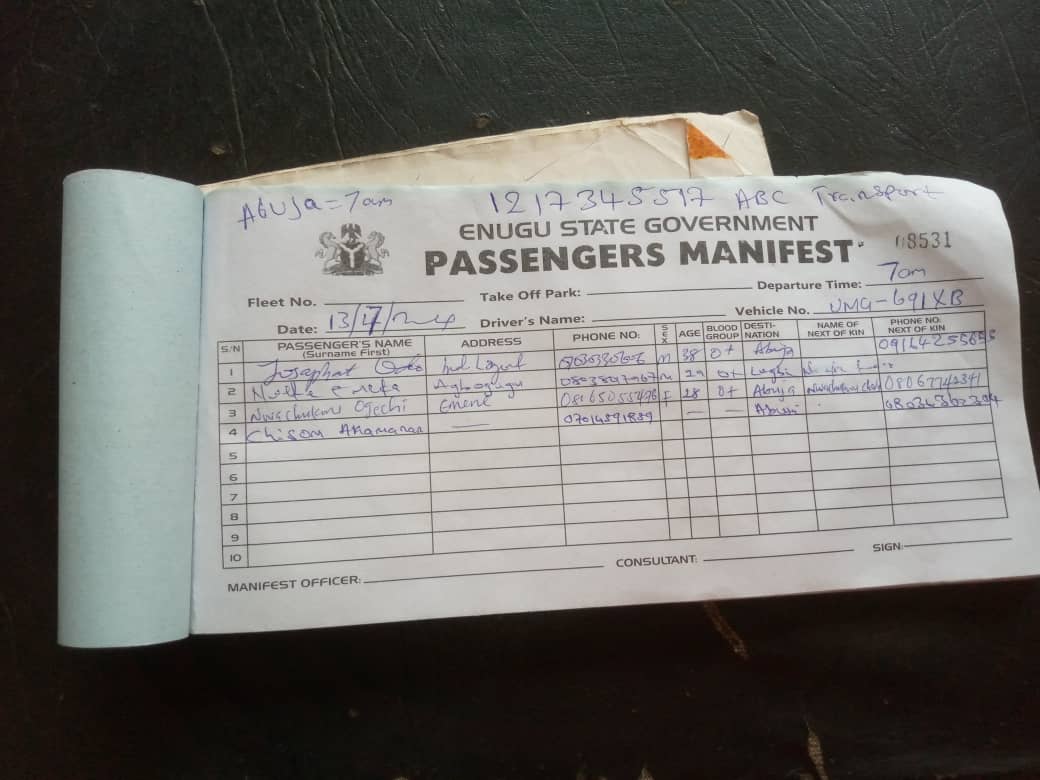 Abuja = 7am 1217345517 ABC Transport
ENUGU STATE GOVERNMENT
PASSENGERS MANIFEST 08531
Fleet No. Take Off Park: Departure Time: 7am
Date: 13/ Driver's Name: Vehicle No. UMG-691XB
S/N PASSENGER'S NAME (Surname First) ADDRESS PHONE NO: SEX AGE BLOOD GROUP DESTI-NATION NAME OF NEXT OF KIN PHONE NO: NEXT OF KIN
1 Josaphat M 38 O+ Abuja
2 Agbogugu M 29 O+ Lugbe
3 Nwachukwu Ogechi Emene 08165055476 F 28 O+ Abuja 08067742341
4 Chisom 07014591839
5
6
7
8
9
10
MANIFEST OFFICER: CONSULTANT: SIGN: